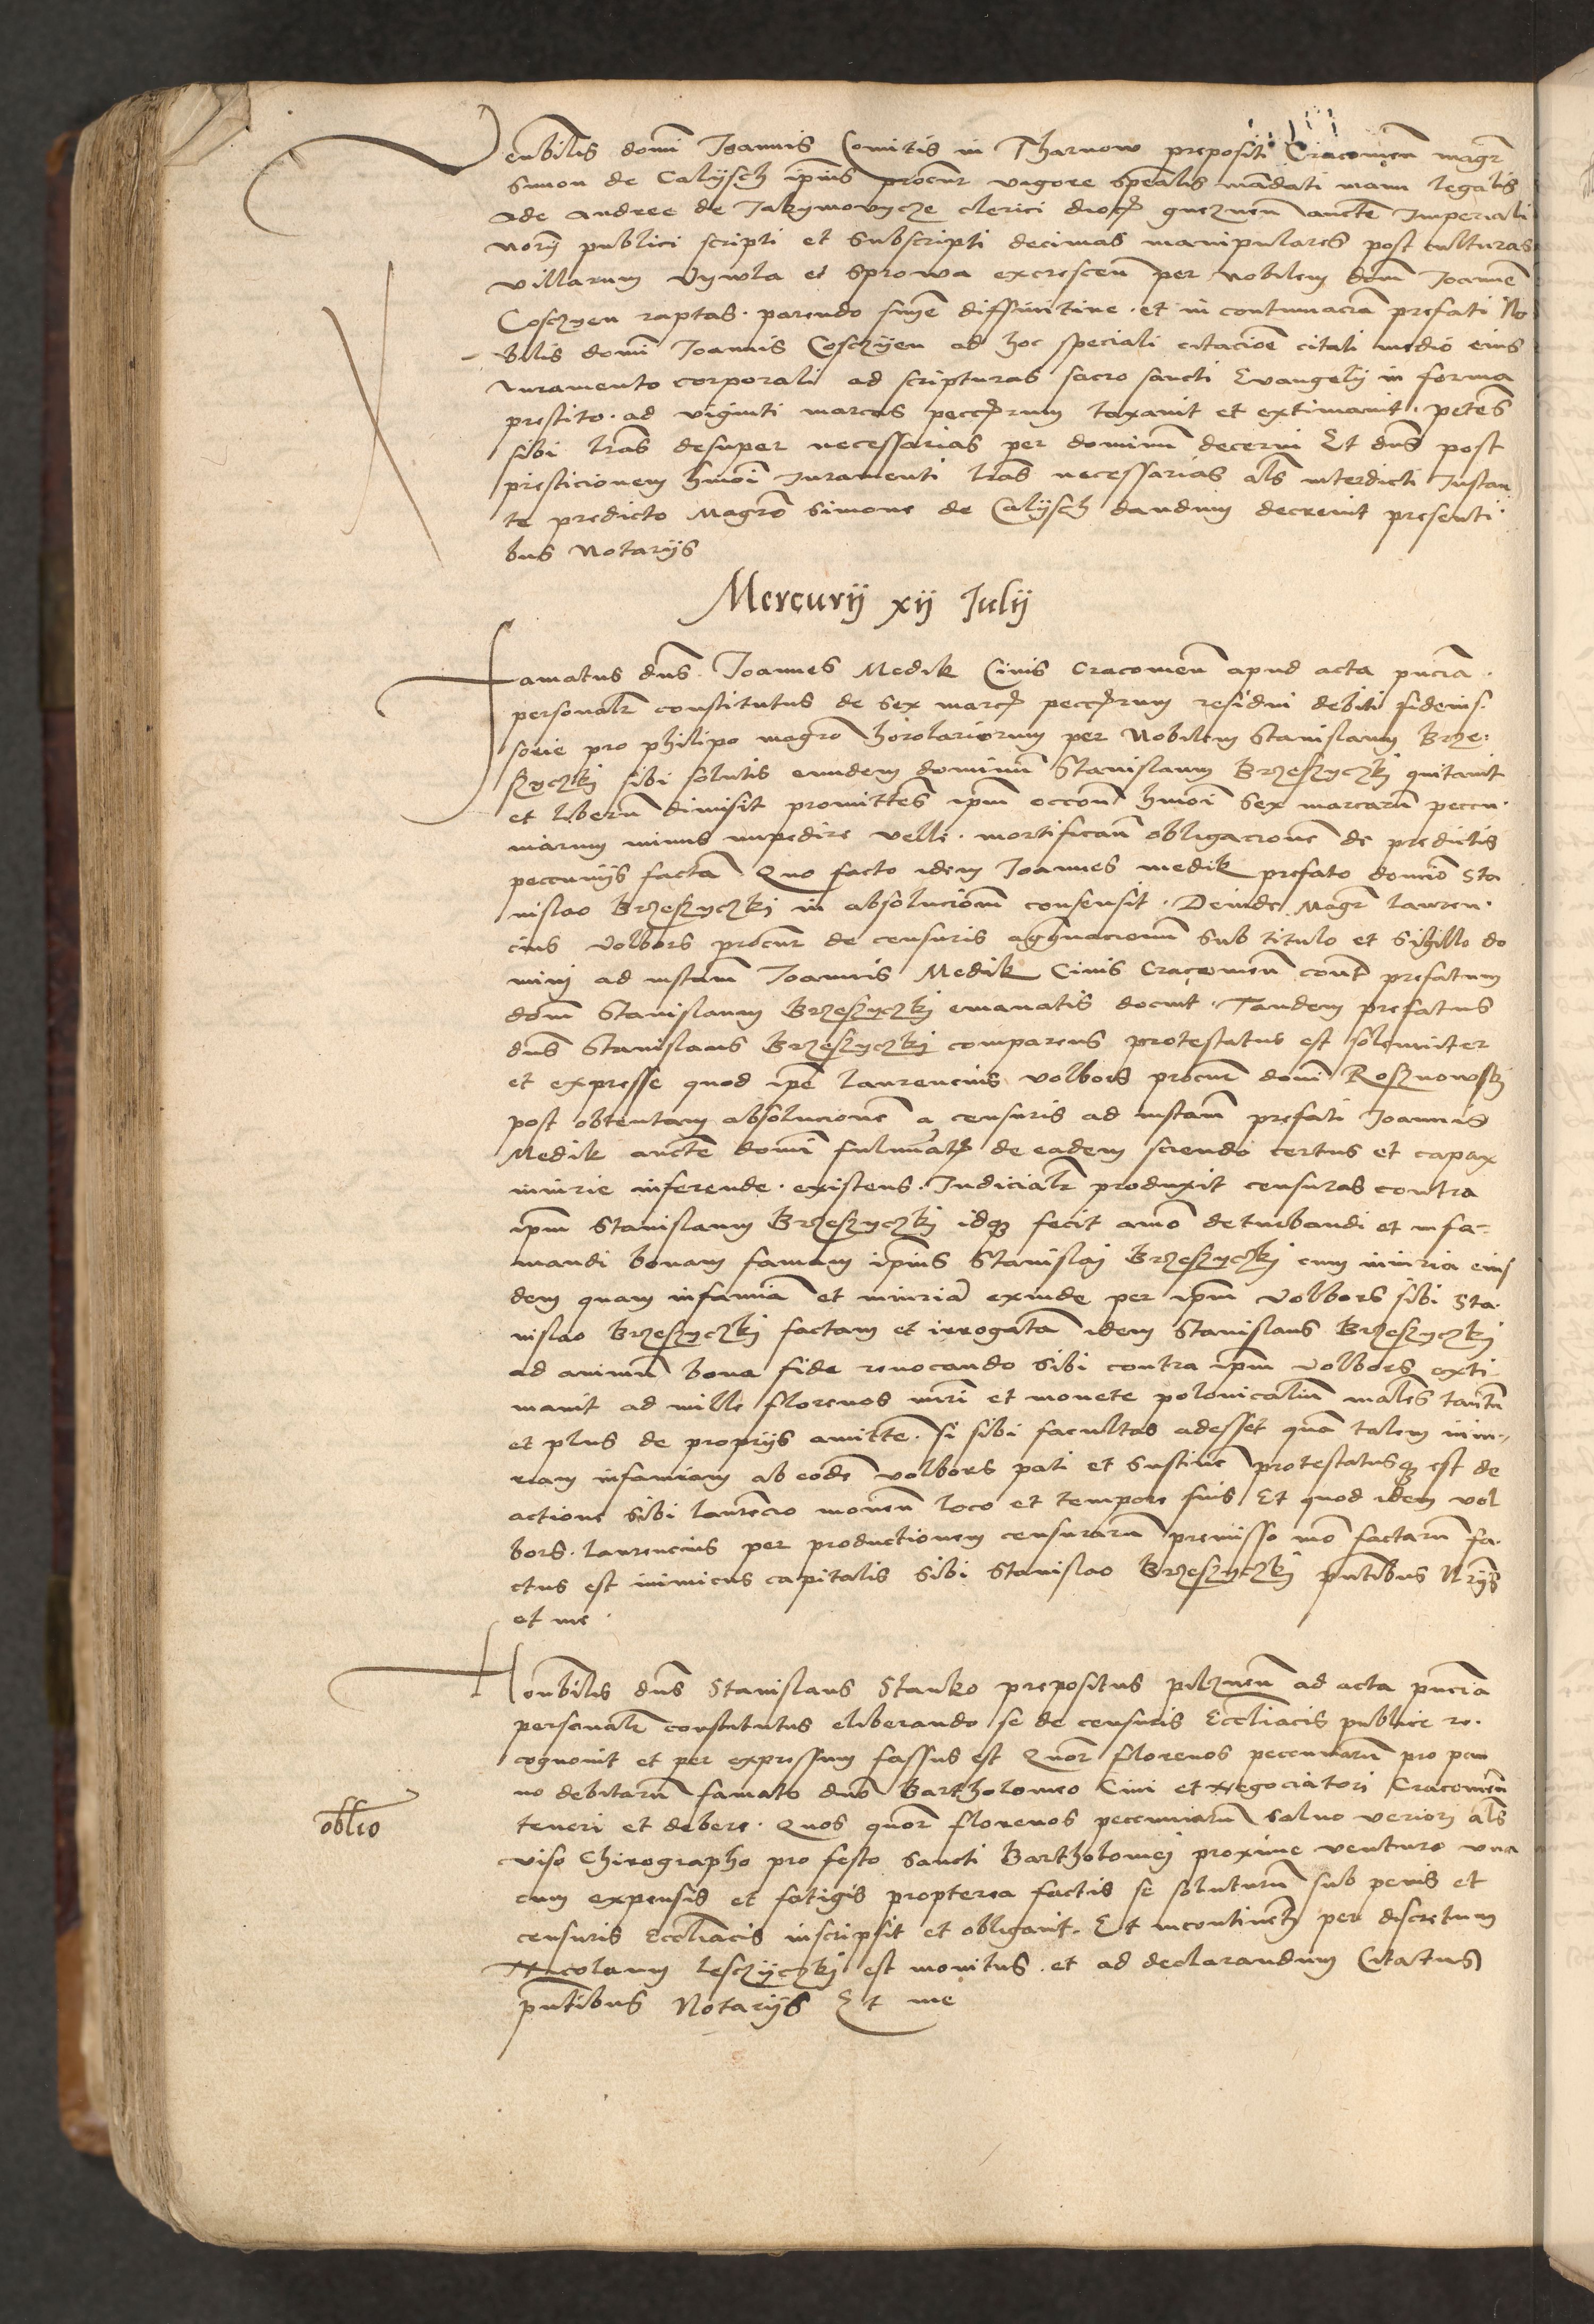 Venbilis domi Joannis Comitis in Tharnow prepositi Cracomien magr
Simon de Calijsch ipius procur vigore spealis mandati manu legalis
Ade Andree de Jakymowycze clerici dioc gneznen aucte Imperiali
norij publici scripti et subscripti decimas manipulares post culturas
villarum Vywla et Sprowa excrescen per nobilem dom Joanne
Coschyen raptas. parendo snie diffinitive. et in contumacia prefati No
bilis domi Joannis Coschyen ad hoc speciali citacioe citati medio eius
Juramento corporali ad scripturas sacro sancti Evangelij in forma
prestito. ad viginti marcas pecc rum taxavit et extimavit. petes
sibi lras desuper necessarias per dominu decerni Et dns post
presticionem hmoi Juramenti lras necessarias als interdicti Instan
te predicto Magro Simone de Calijsch dandum decrevit presenti
bus Notarijs
Mercurij xij Julij
Famatus dns. Joannes Medik Civis Cracomien apud acta pncia.
personalr constitutus de sex marc pecc rum residui debiti fideius.
sorie pro philipo magro horolariorum per Nobilem Stanislaum Brze.
szyczkj sibi solutis eundem dominu Stanislaum Brzeszyczkj quitavit
et liberu dimisit promittes ipm occon hmoi sex marcaru peccu.
niarum minus impedire velle. mortifican obligacione de predictis
peccunijs facta Quo facto idem Joannes medik prefato domio Sta
nislao Brzeszyczkj in absolucionem consensit. Deinde Magr lauren.
cius volbors procur de censuris aggravacionum sub titulo et sigillo do
minj ad instam Joannis Medik Civis Cracomien cont prefatum
dom Stanislaum Brzeszyczkj emanatis docuit. Tandem prefatus
dns Stanislaus Brzeszyczkj comparens protestatus est solenniter
et expresse quod ipe laurencius volbors procur domi Rosznowskj
post obtentam absolucione a censuris ad instam prefati Joannis
Medik aucte domi fulminat de eadem sciendo certus et capax
iniurie inferende. existens. Iudicialr produxit censuras contra
ipm Stanislaum Brzeszyczkj idque fecit amo deturbandi et infa-
mandi bonam famam ipius Stanislaj Brzeszyczkj cum iniuria eius
dem quam infamia et iniuria exinde per ipm Volbors sibi Sta.
nislao Brzeszyczkj factam et irrogata idem Stanislaus Brzeszyczkj
ad animu bona fide revocando sibi contra ipm volbors exti-
mavit ad mille florenos nuri et monete polonicalium males tantu
et plus de proprijs amitte. si sibi facultas adesset qua talem iniu-
riam infamiam ab eode volbors pati et sustine protestatusque est de
actione sibi laurecio moven loco et tempore suis Et quod idem vol
bors. laurencius per productionem censuraru premisso mo factaru fa.
ctus est inimicus capitalis sibi Stanislao Brzeszyczkj pntibus Nrijs
et me.
Honbilis dns Stanislaus Stanko prepositus pilznen ad acta pncia
personalr constitutus eliberando se de censuris Eccliacis publice re.
cognovit et per expressum fassus est Quor florenos peccuniaru pro pan
no debitaru famato dno Bartholomeo Civi et Negociatori Cracomien
oblio
teneri et debere. Quos quor florenos peccuniaru salvo veriorj als
viso Chirographo pro festo sancti Bartholomej proxime venturo una
cum expensis et fatigis propterea factis se soluturu sub penis et
censuris Eccliacis inscripsit et obligavit. Et incontinent per discretum
Nicolaum Leschyczkj est monitus. et ad declarandum Citatus
pntibus Notarijs Et me